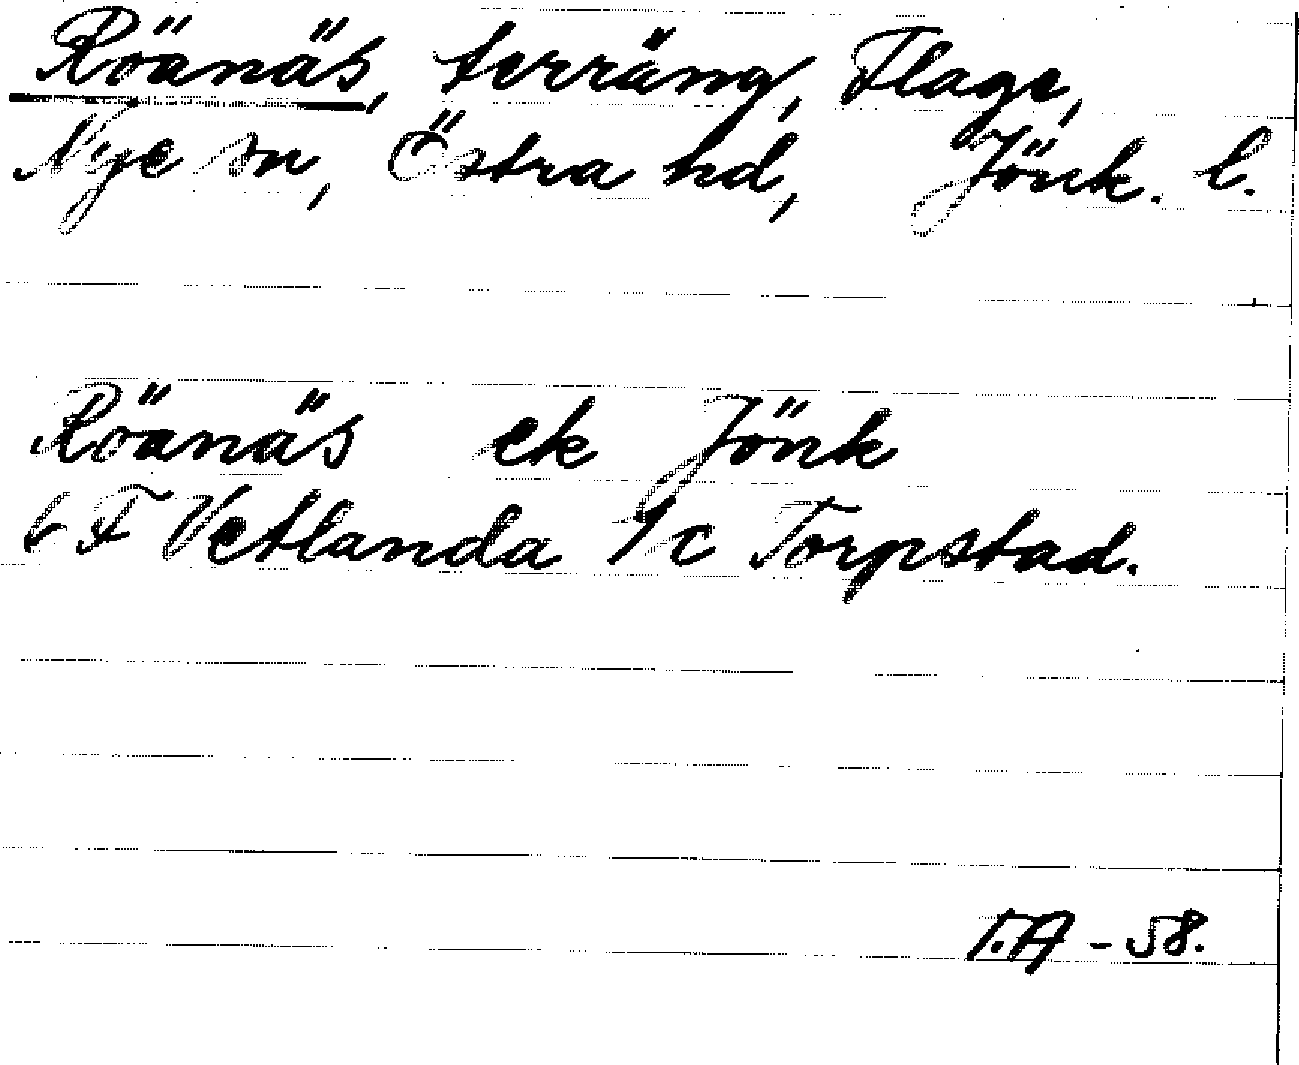 Röänäs, terräng, Flage,
Nye sn, Östra hd, Jönk. l.
Röänäs ek Jönk
6 F Vetlanda 9c Torpstad.
T.A - 58.